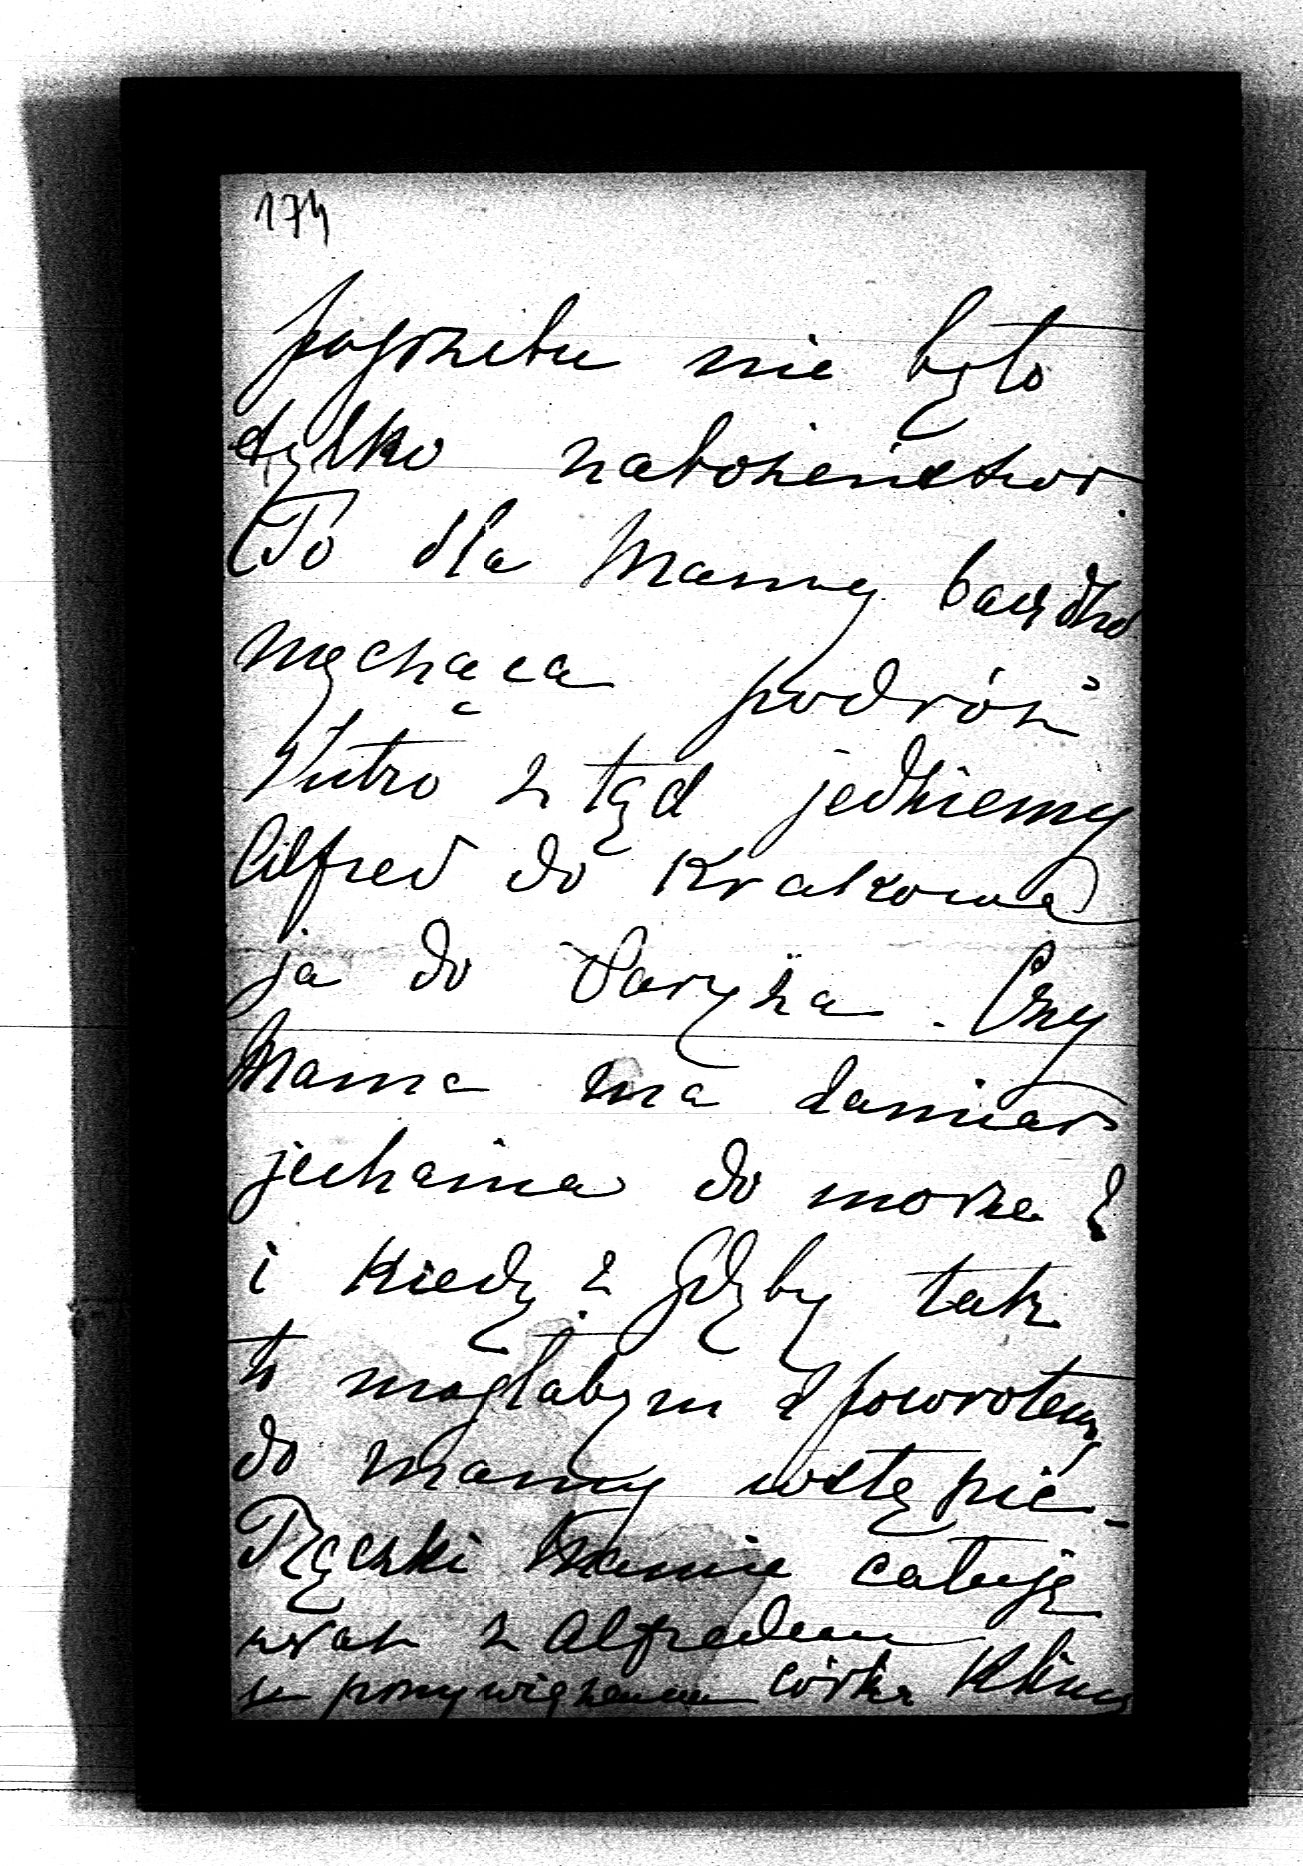 174
pogrzebu nie było
tylko nabożeństwo.
To dla Mamy bardzo
męcząca podróż
Jutro z tąd jedziemy
Alfred do Krakowa
ja do Paryża. Czy
Mama ma zamiar
jechania do morza ?
i kiedy ? Gdyby tak
to mogłabym z powrotem
do mamy wstąpić -
Rączki Mamie całuję
wraz z Alfredem
przywiązana córka